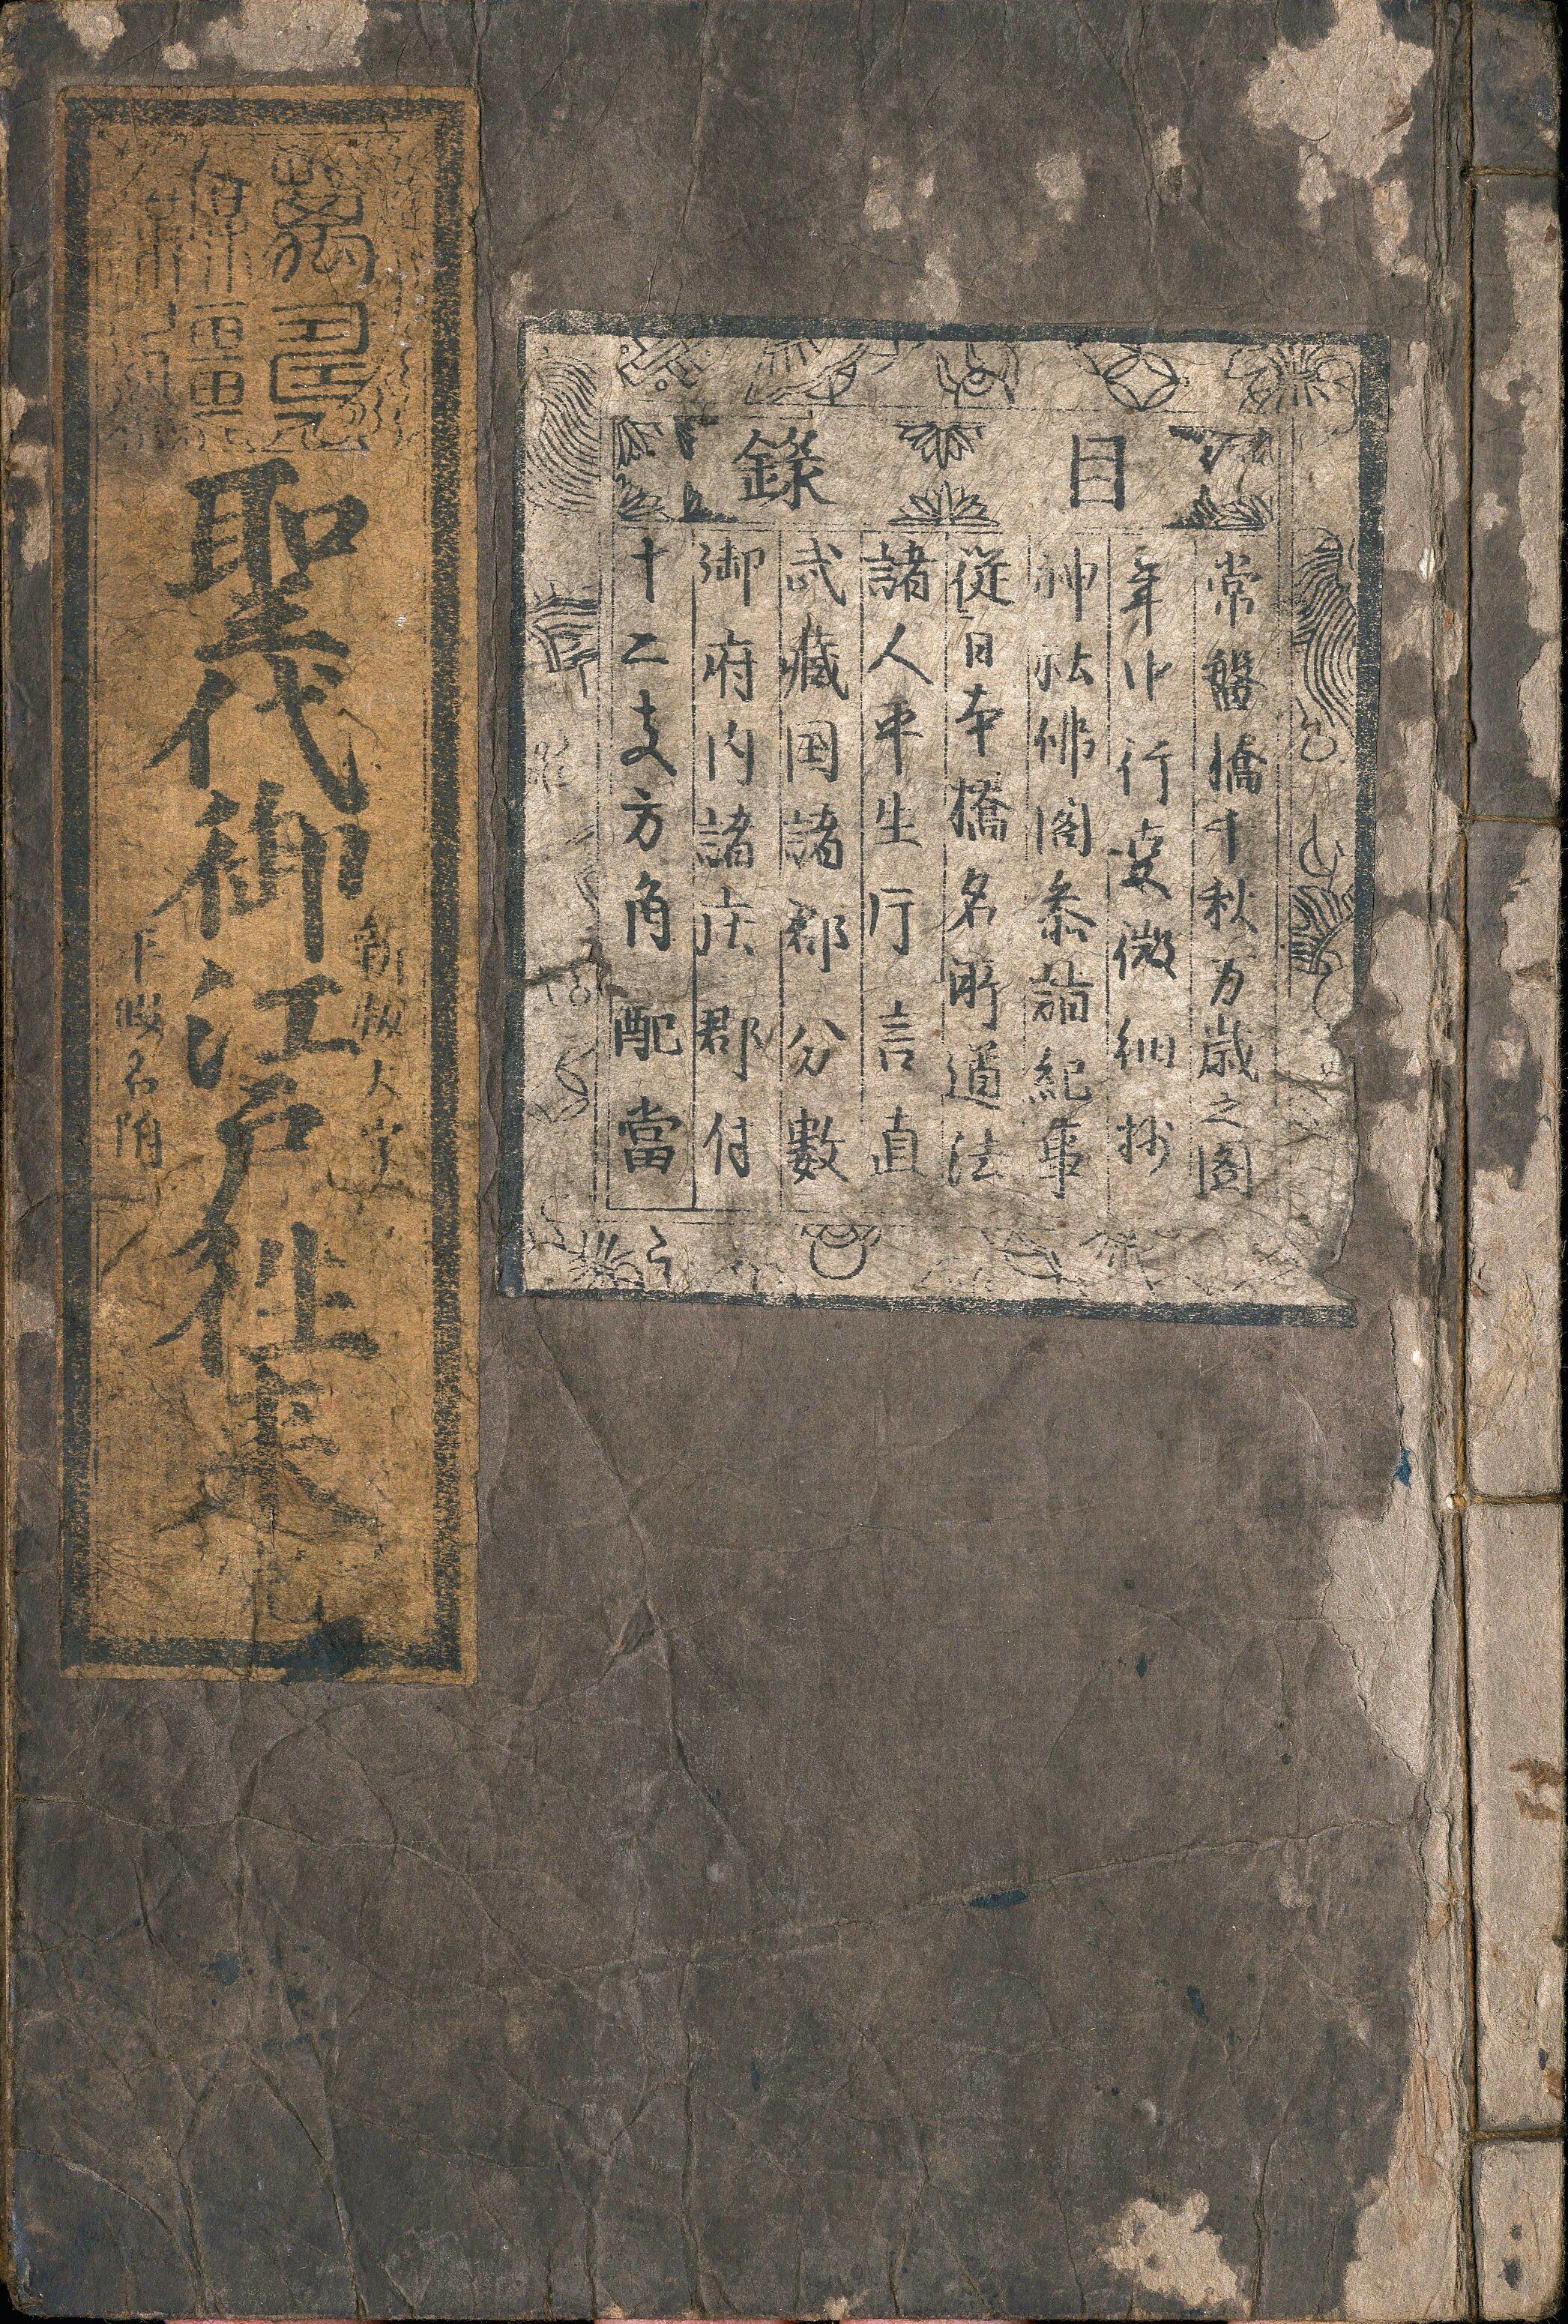 目録
常盤橋千秋万歳之圖
年中行叓微細抄
神社佛閣参詣紀事
從日本橋名所道法
諸人平生片言直
武藏国諸郡分數
御府内諸庄郡付
十二支方角配當
萬壽
無疆
聖代御江戸往来
新板大字
片假名附